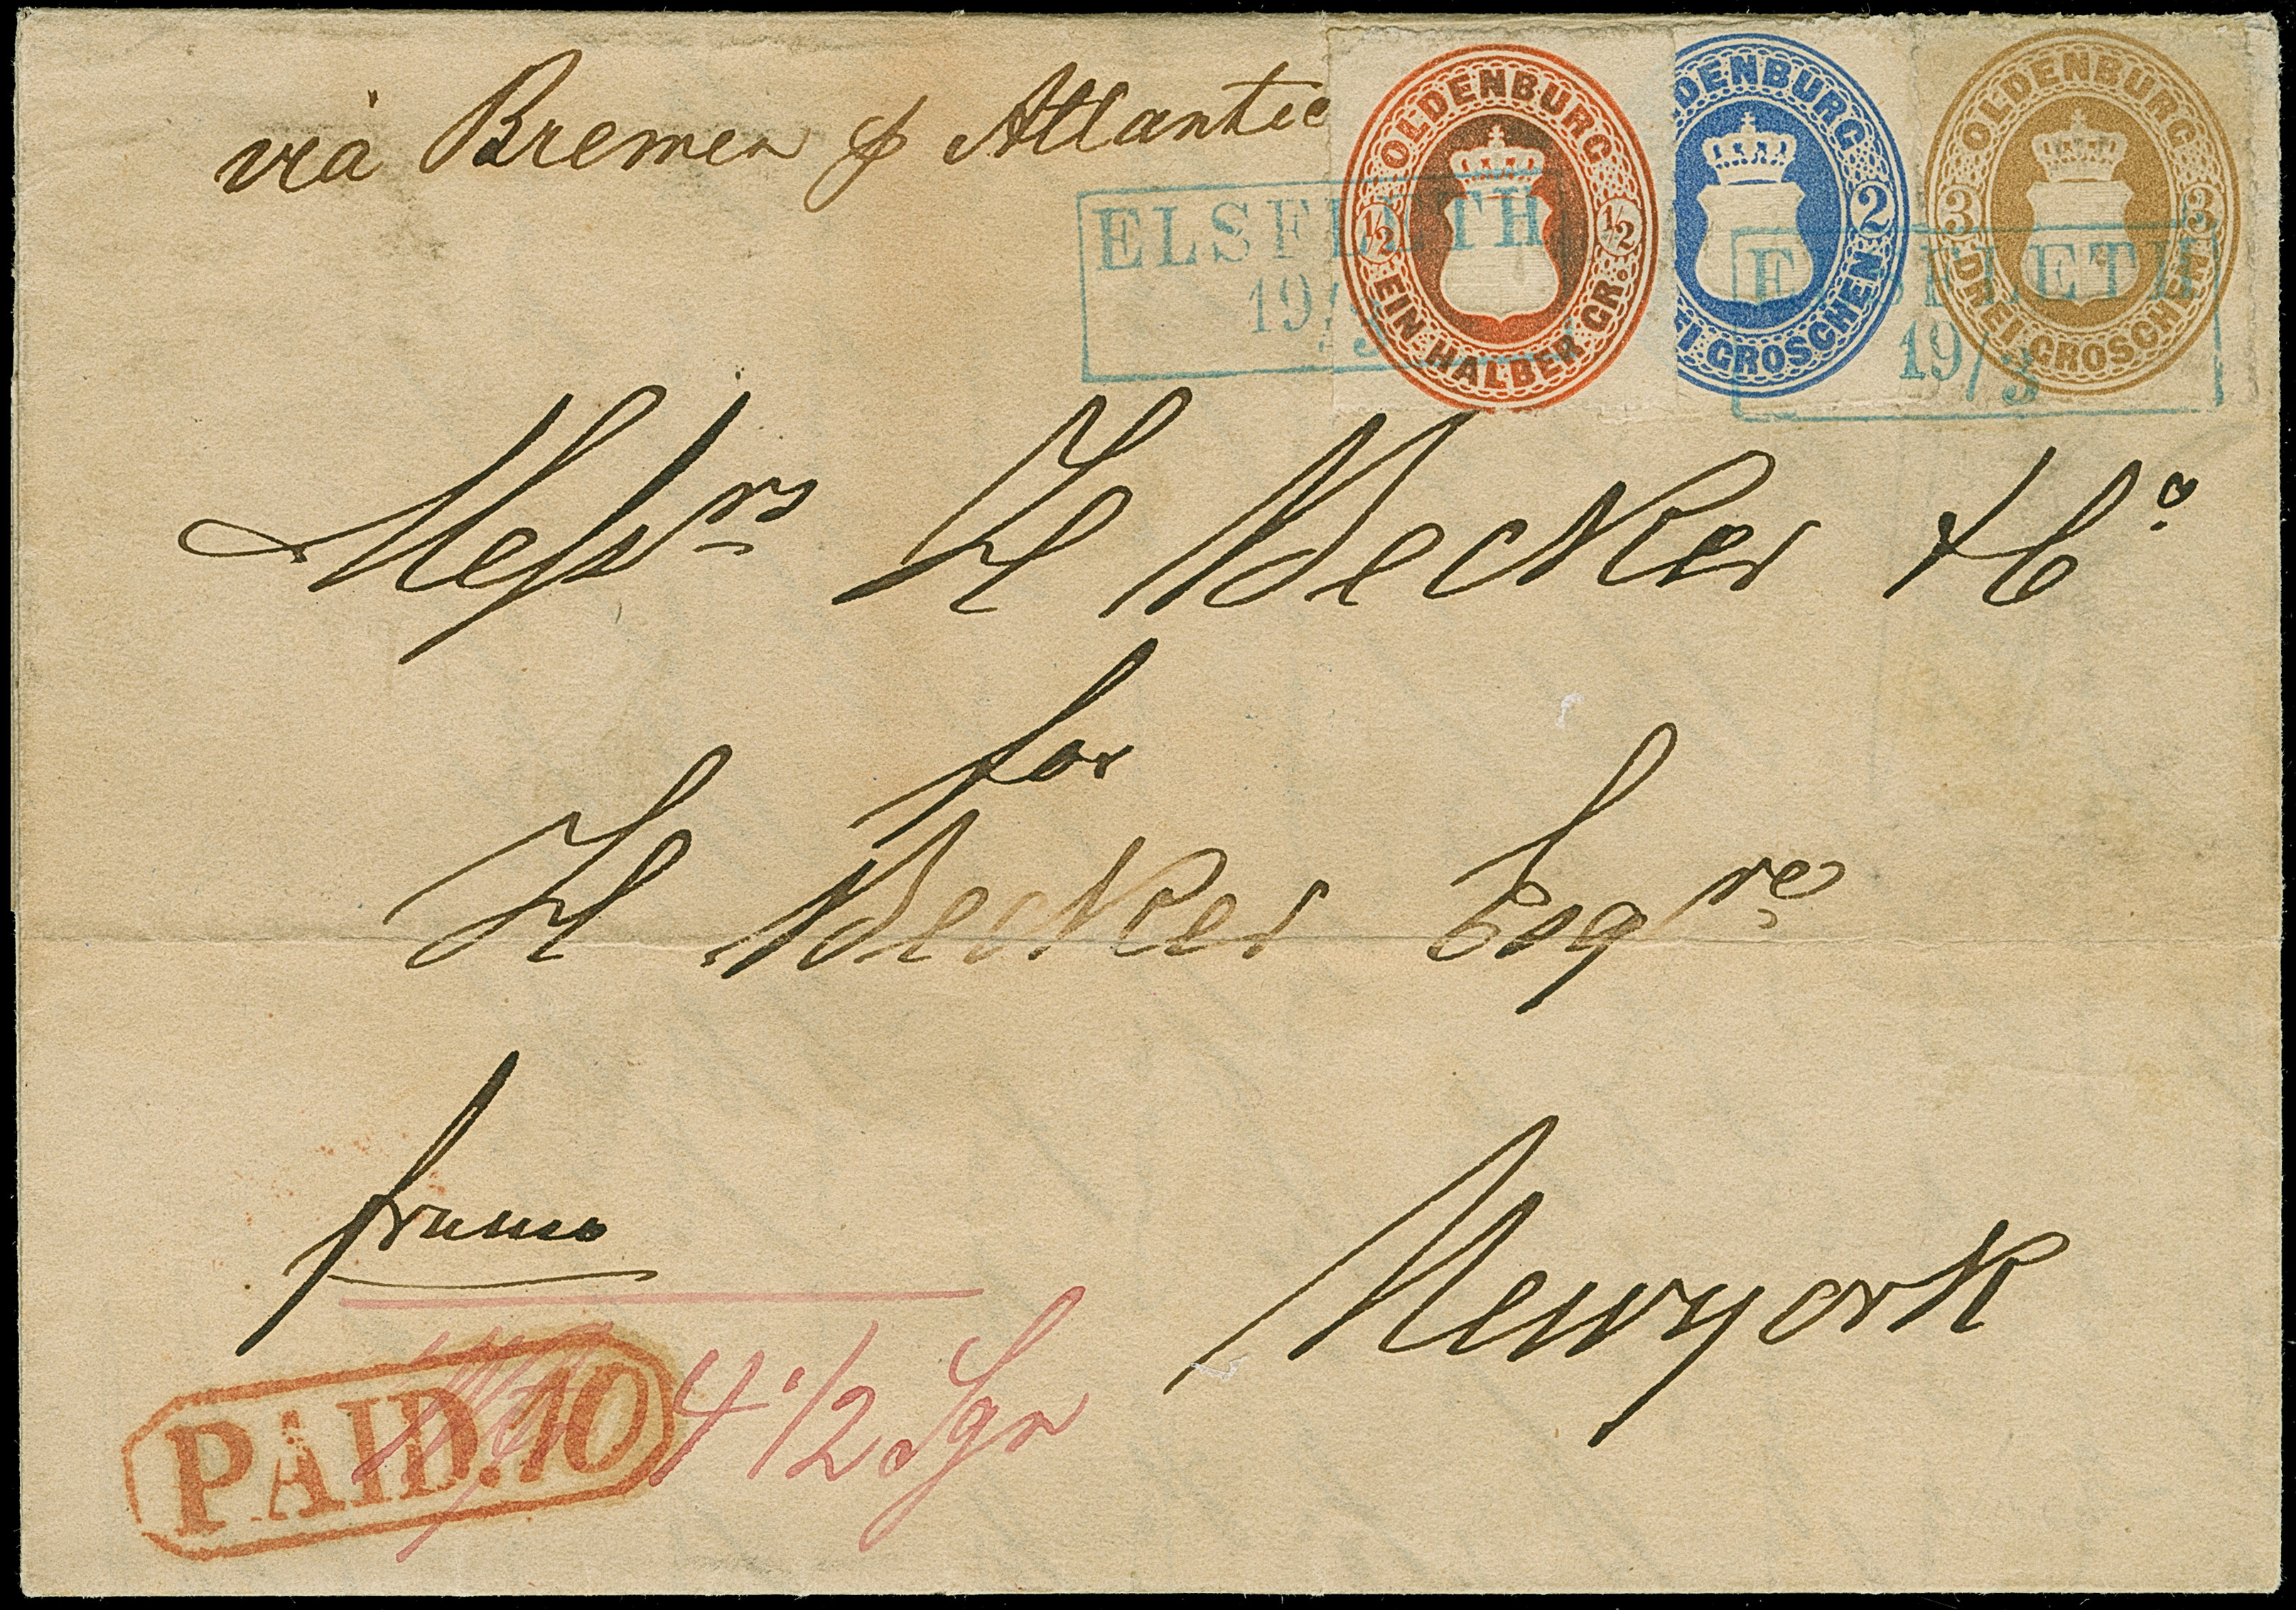 via Bremen p Atlantic
OLDENBURG
1/2 1/2
EIN HALBER GR.
DENBURG
2
EI GROSCHEN
OLDENBURG
3 3
DREI GROSCHEN
ELSFLETH
19/3
ELSFLETH
19/3
Messrs H Becker & Co
for
H Becker Esqre
franco
Newyork
PAID.10
4 1/2 Sgr